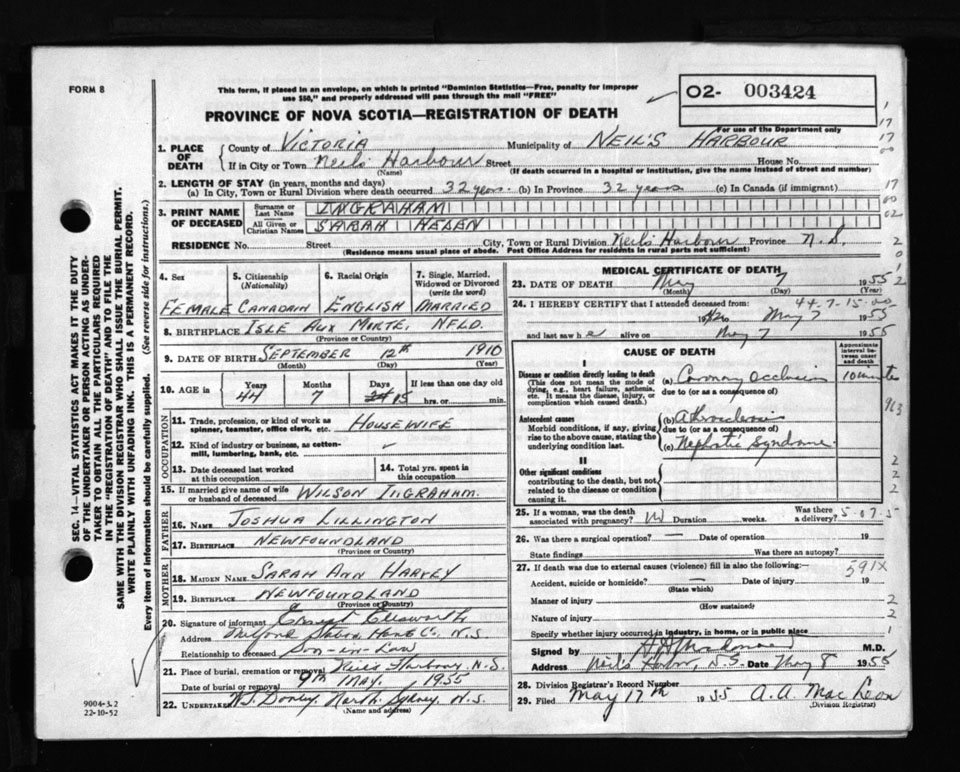 FORM 8
This form, if placed in an envelope, on which is printed "Dominion Statistics—Free, penalty for improper
use $50," and properly addressed will pass through the mail "FREE"
02- 003424
PROVINCE OF NOVA SCOTIA—REGISTRATION OF DEATH
For use of the Department only
1. PLACE OF DEATH
County of VICTORIA Municipality of NEIL'S HARBOUR
If in City or Town Neils Harbour Street House No.
(Name) (If death occurred in a hospital or institution, give the name instead of street and number)
2. LENGTH OF STAY (in years, months and days)
(a) In City, Town or Rural Division where death occurred 32 years. (b) In Province 32 years (c) In Canada (if immigrant)
3. PRINT NAME OF DECEASED
Surname or Last Name INGRAHAM
All Given or Christian Names SARAH HELEN
RESIDENCE No. Street City, Town or Rural Division Neils Harbour Province N.S.
(Residence means usual place of abode. Post Office Address for residents in rural parts not sufficient)
4. Sex 5. Citizenship (Nationality) 6. Racial Origin 7. Single, Married, Widowed or Divorced (write the word)
FEMALE CANADAIN ENGLISH MARRIED
8. BIRTHPLACE ISLE AUX MORTE, NFLD.
(Province or Country)
9. DATE OF BIRTH SEPTEMBER 12th 1910
(Month) (Day) (Year)
10. AGE in Years Months Days If less than one day old
44 7 25 hrs. or min.
OCCUPATION
11. Trade, profession, or kind of work as spinner, teamster, office clerk, etc. HOUSEWIFE
12. Kind of industry or business, as cotton-mill, lumbering, bank, etc.
13. Date deceased last worked at this occupation 14. Total yrs. spent in this occupation
15. If married give name of wife or husband of deceased WILSON INGRAHAM.
FATHER
16. NAME JOSHUA LILLINGTON
17. BIRTHPLACE NEWFOUNDLAND
(Province or Country)
MOTHER
18. MAIDEN NAME SARAH ANN HARVEY
19. BIRTHPLACE NEWFOUNDLAND
(Province or Country)
20. Signature of informant Ernest Ellsworth
Address N.S
Relationship to deceased Son-in-Law
21. Place of burial, cremation or removal Neils Harbour, N.S.
Date of burial or removal 9th May, 1955
22. UNDERTAKER North Sydney, N.S.
(Name and address)
MEDICAL CERTIFICATE OF DEATH
23. DATE OF DEATH May 7 1955
(Month) (Day) (Year)
24. I HEREBY CERTIFY that I attended deceased from: 44-7-15-00
19 to May 7 1955
and last saw her alive on May 7 1955
CAUSE OF DEATH
Approximate interval between onset and death
I
Disease or condition directly leading to death (a) Coronary occlusion 10 minutes
(This does not mean the mode of dying, e.g., heart failure, asthenia, etc. It means the disease, injury, or complication which caused death.) due to (or as a consequence of)
Antecedent causes (b)
Morbid conditions, if any, giving rise to the above cause, stating the underlying condition last. due to (or as a consequence of)
(c) Nephrotic Syndrome
II
Other significant conditions
contributing to the death, but not related to the disease or condition causing it.
25. If a woman, was the death associated with pregnancy? No Duration weeks. Was there a delivery? 5-07-5
26. Was there a surgical operation? — Date of operation 19
State findings Was there an autopsy?
27. If death was due to external causes (violence) fill in also the following:—
591X
Accident, suicide or homicide? — Date of injury 19
(State which)
Manner of injury
(How sustained)
Nature of injury
Specify whether injury occurred in industry, in home, or in public place
Signed by M.D.
Address Neils Harbor, N.S. Date May 8 1955
28. Division Registrar's Record Number
29. Filed May 17th 1955 A. A. MacLeon
(Division Registrar)
SEC. 14—VITAL STATISTICS ACT MAKES IT THE DUTY
OF THE UNDERTAKER OR PERSON ACTING AS UNDER-
TAKER TO OBTAIN ALL THE PARTICULARS REQUIRED
IN THE "REGISTRATION OF DEATH" AND TO FILE THE
SAME WITH THE DIVISION REGISTRAR WHO SHALL ISSUE THE BURIAL PERMIT.
WRITE PLAINLY WITH UNFADING INK. THIS IS A PERMANENT RECORD.
Every item of information should be carefully supplied. (See reverse side for instructions.)
9004-3.2
22-10-52